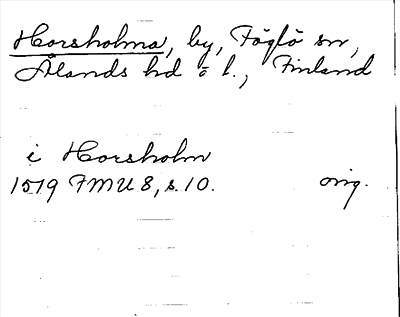 Horsholma, by, Föglö sn,
Ålands hd o l., Finland
i Horsholm
1519 FMU 8, s. 10. orig.